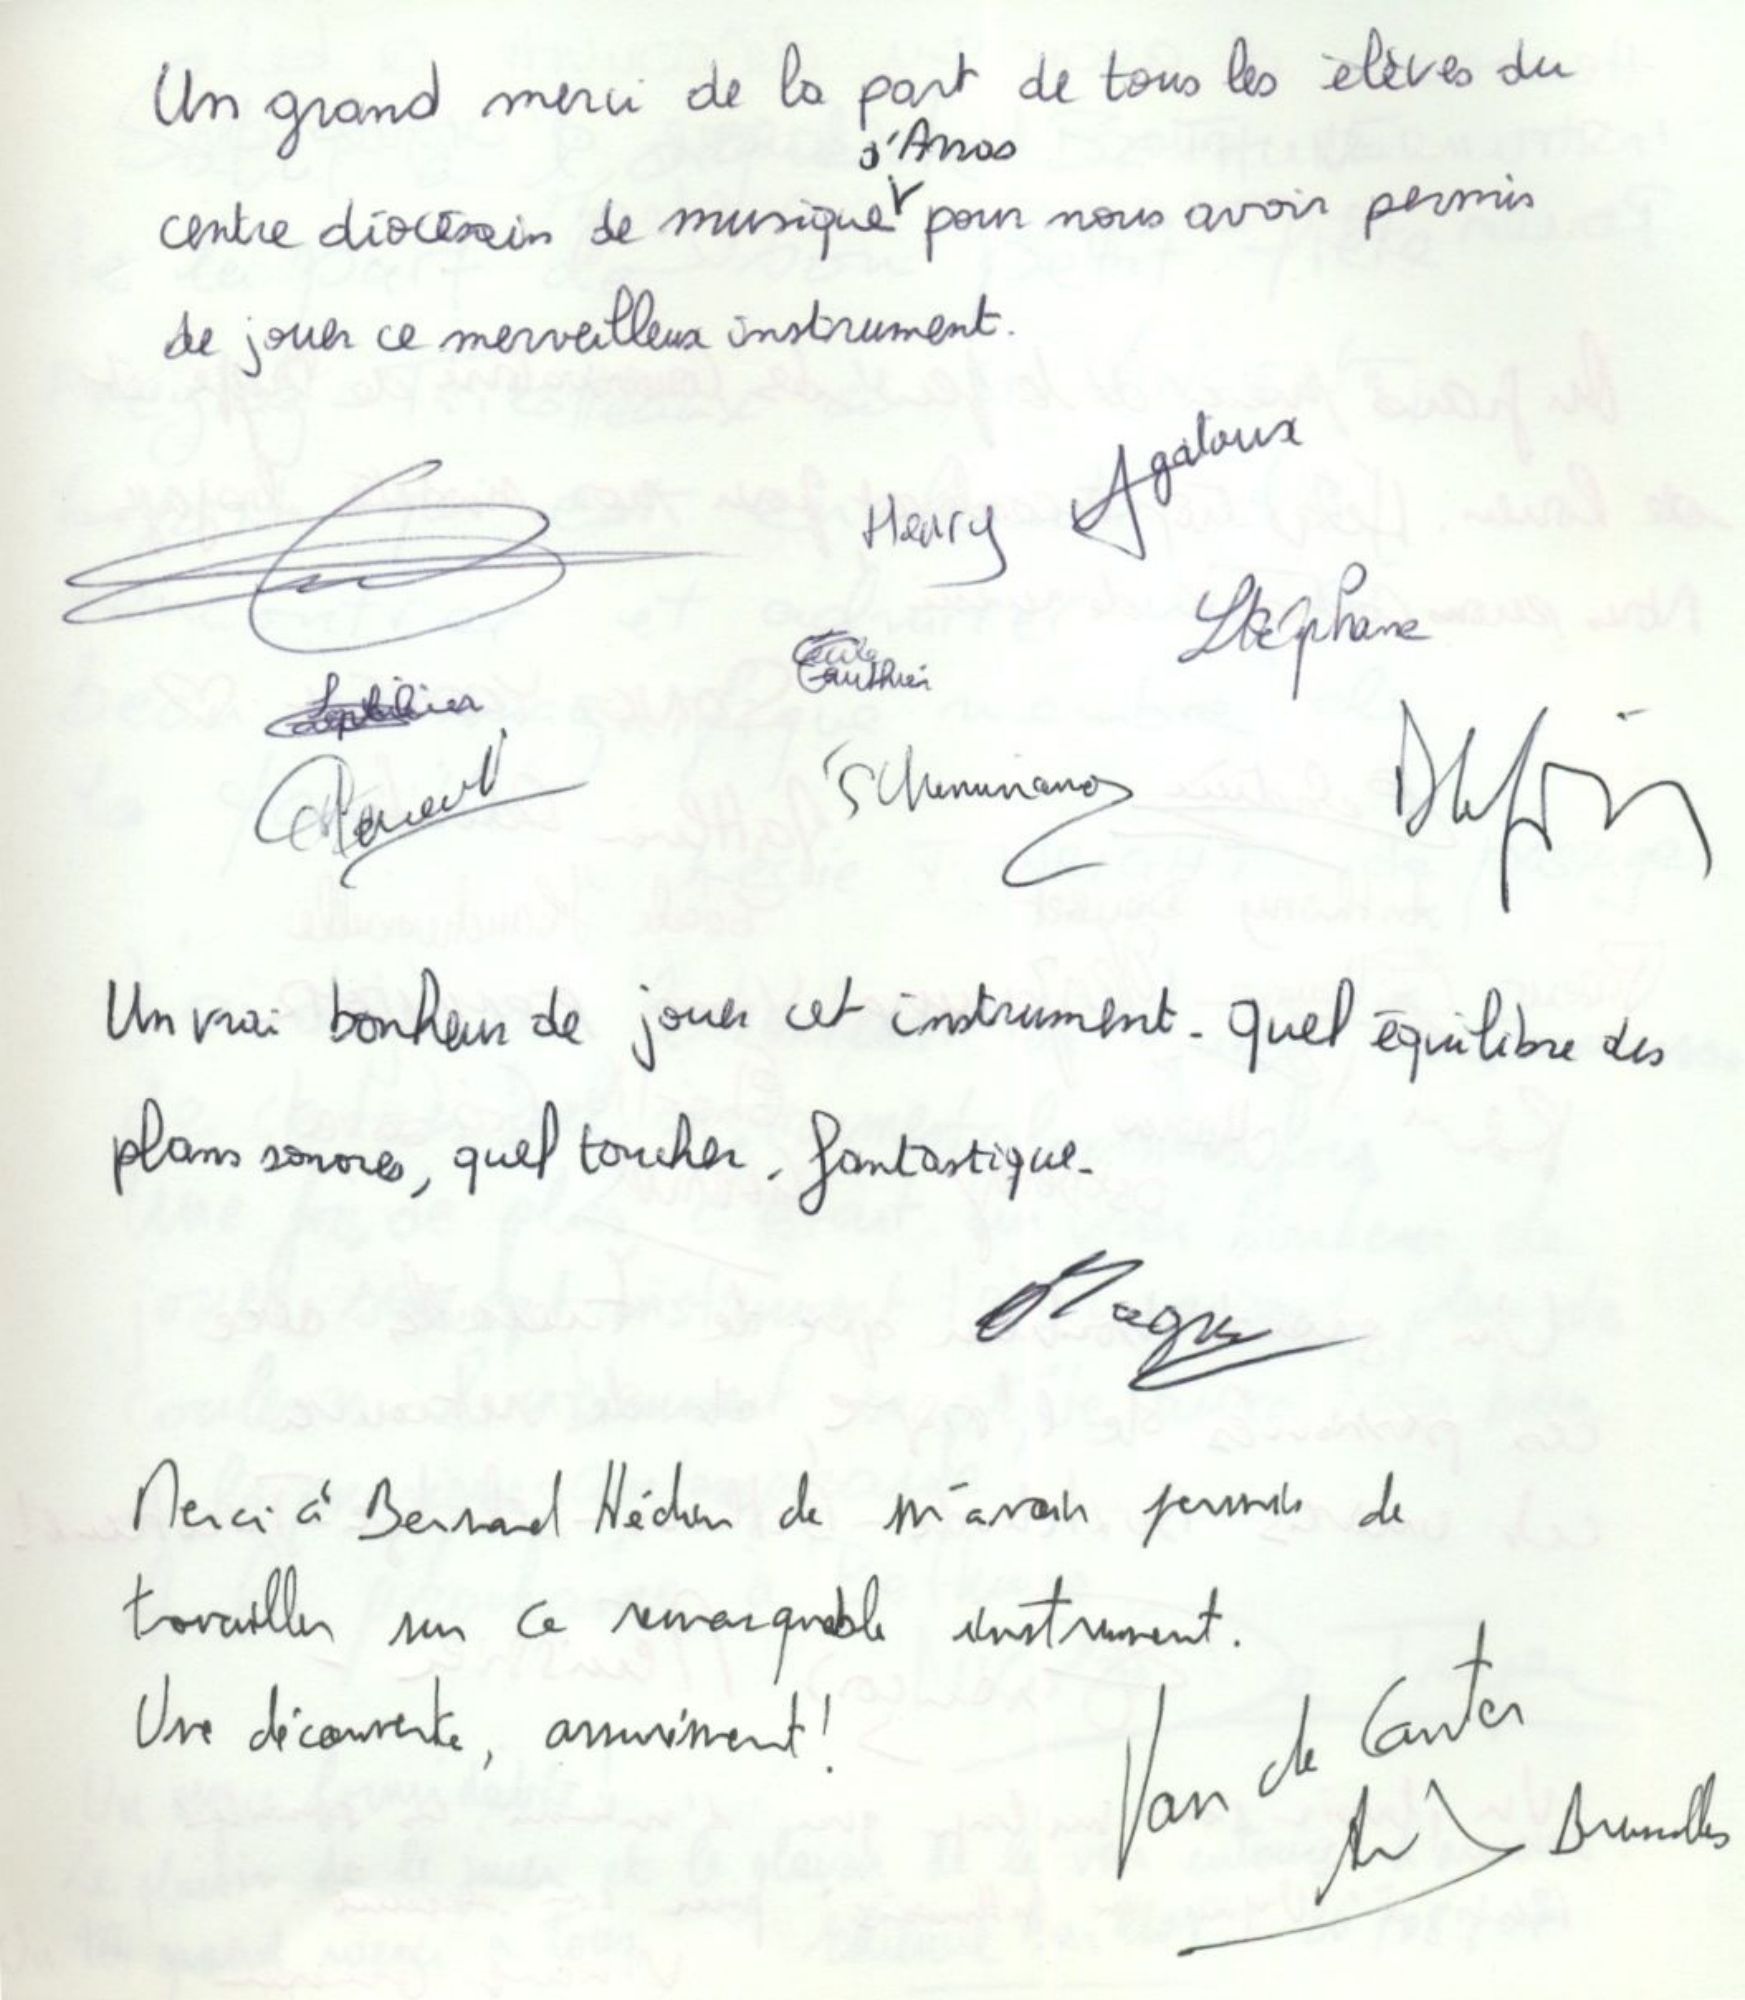 Un grand merci de la part de tous les élèves du
d'Arras
centre diocésain de musique pour nous avoir permis
de jouer ce merveilleux instrument.
Agatoux
Henry
Stéphane
Cécile
Gauthier
Un vrai bonheur de jouer cet instrument. Quel équilibre des
plans sonores, quel toucher. fantastique.
Merci à Bernard Hédin de m'avoir permis de
travailler sur ce remarquable instrument.
Une découverte, assurément!
Van de Cauter
Bruxelles